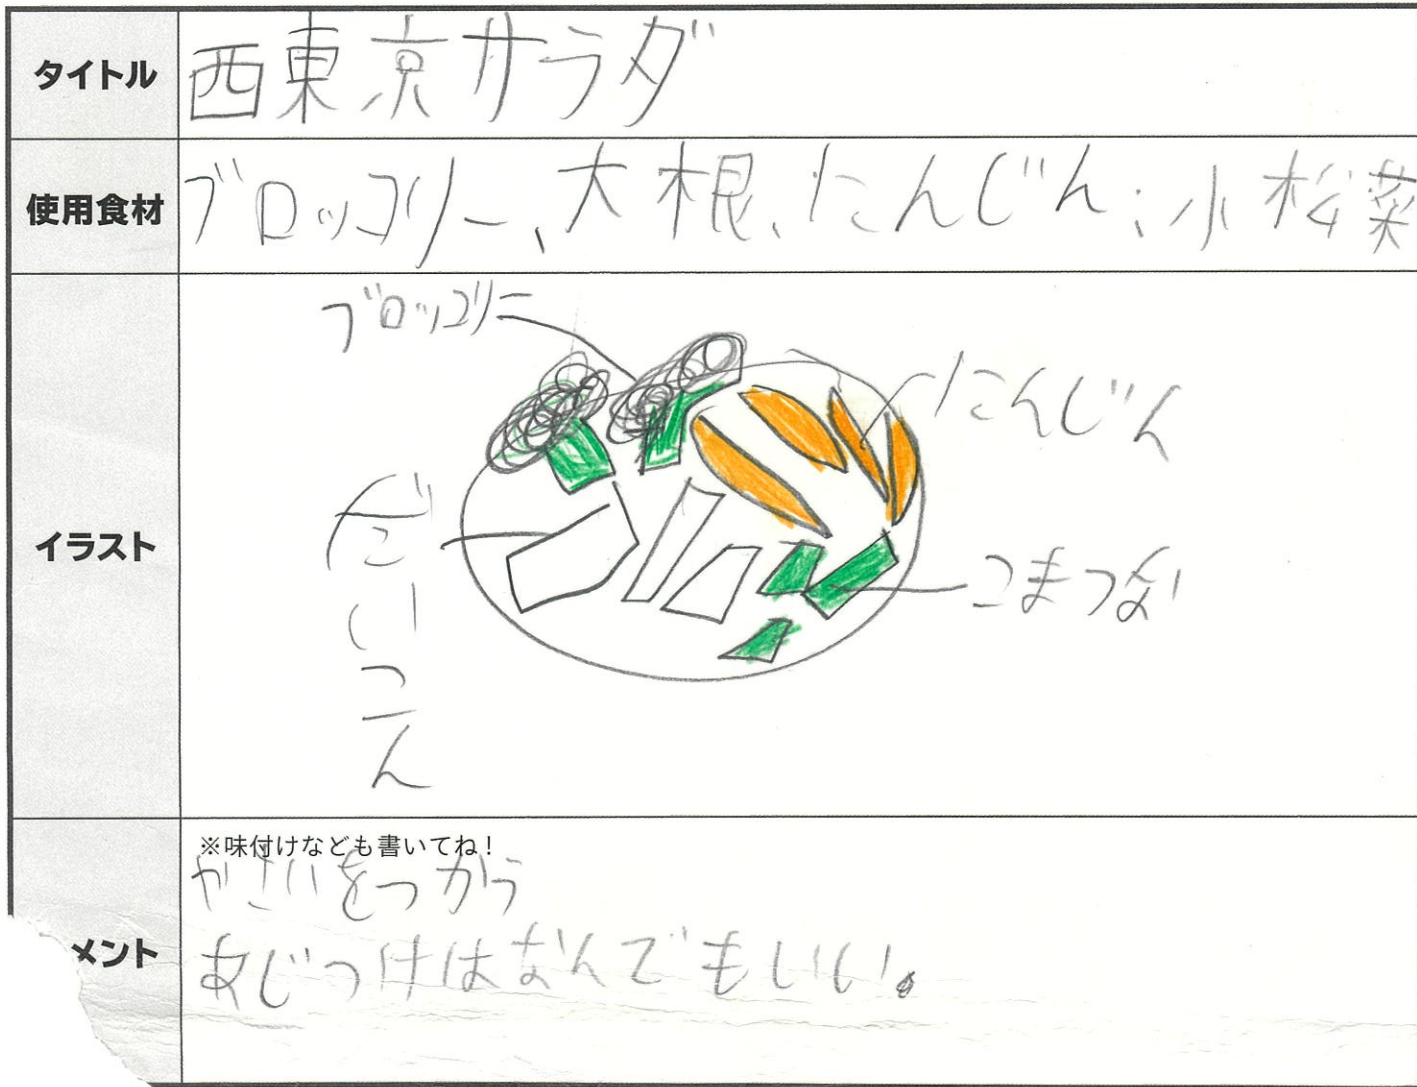 タイトル
西東京サラダ
使用食材
ブロッコリー、大根、にんじん、小松菜
イラスト
ブロッコリー
にんじん
だいこん
こまつな
メント
※味付けなども書いてね！
やさいをつかう
あじつけはなんでもいい。